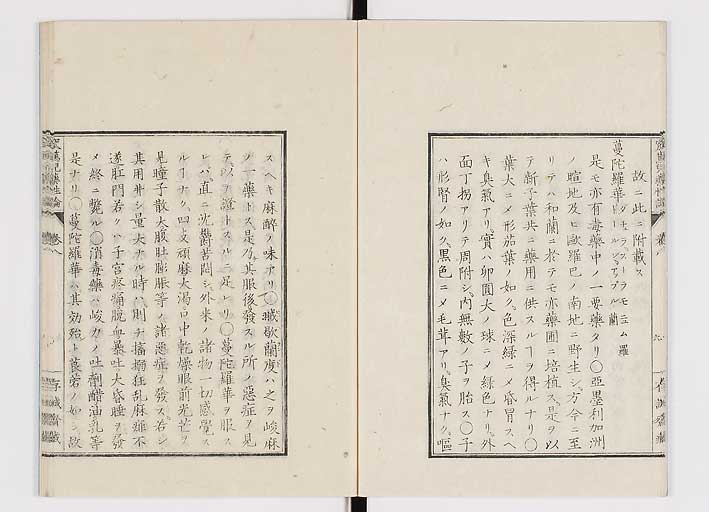 故ニ此ニ附載ス
蔓陀羅華 ダチュラスタラモニュム羅 ドールンアップル蘭
是モ亦有毒藥中ノ一要藥タリ〇亞墨利加洲
ノ暄地及ヒ歐羅巴ノ南地ニ野生シ方今ニ至
リテハ和蘭ニ於テモ亦藥圃ニ培植ス是ヲ以
テ斯子葉共ニ藥用ニ供スルヿヲ得ルナリ〇
葉大ニメ形茄葉ノ如ク色深綠ニメ昏冒スヘ
キ臭氣アリ實ハ卵圓大ノ球ニメ綠色ナリ外
面丁拐アリテ周附シ內無數ノ子ヲ胎ス〇子
ハ形腎ノ如ク黑色ニメ毛茸アリ臭氣ナク嘔
スヘキ麻醉ノ味アリ〇
ハ之ヲ峻麻
ノ一藥トス是乃其服後發スル所ノ惡症ヲ見
テ以テ證トスルニ足レリ〇蔓陀羅華ヲ服ス
レハ直ニ沈鬱苦悶シ外來ノ諸物一切感覺ス
ルヿナク四支頑麻大渴口中乾燥眼前光芒ヲ
見瞳子散大腹肚膨脹等ノ諸惡症ヲ發ス若シ
其用
量大ナル時ハ則チ搐搦狂亂麻痺不
遂肛門若クハ子宮疼痛脫血暴吐大昏睡ヲ發
メ終ニ斃ル〇消毒藥ハ峻力ノ吐劑醋油乳等
是ナリ〇蔓陀羅華ハ其効殆ト莨菪ノ如シ故
卷八
存誠齋藏